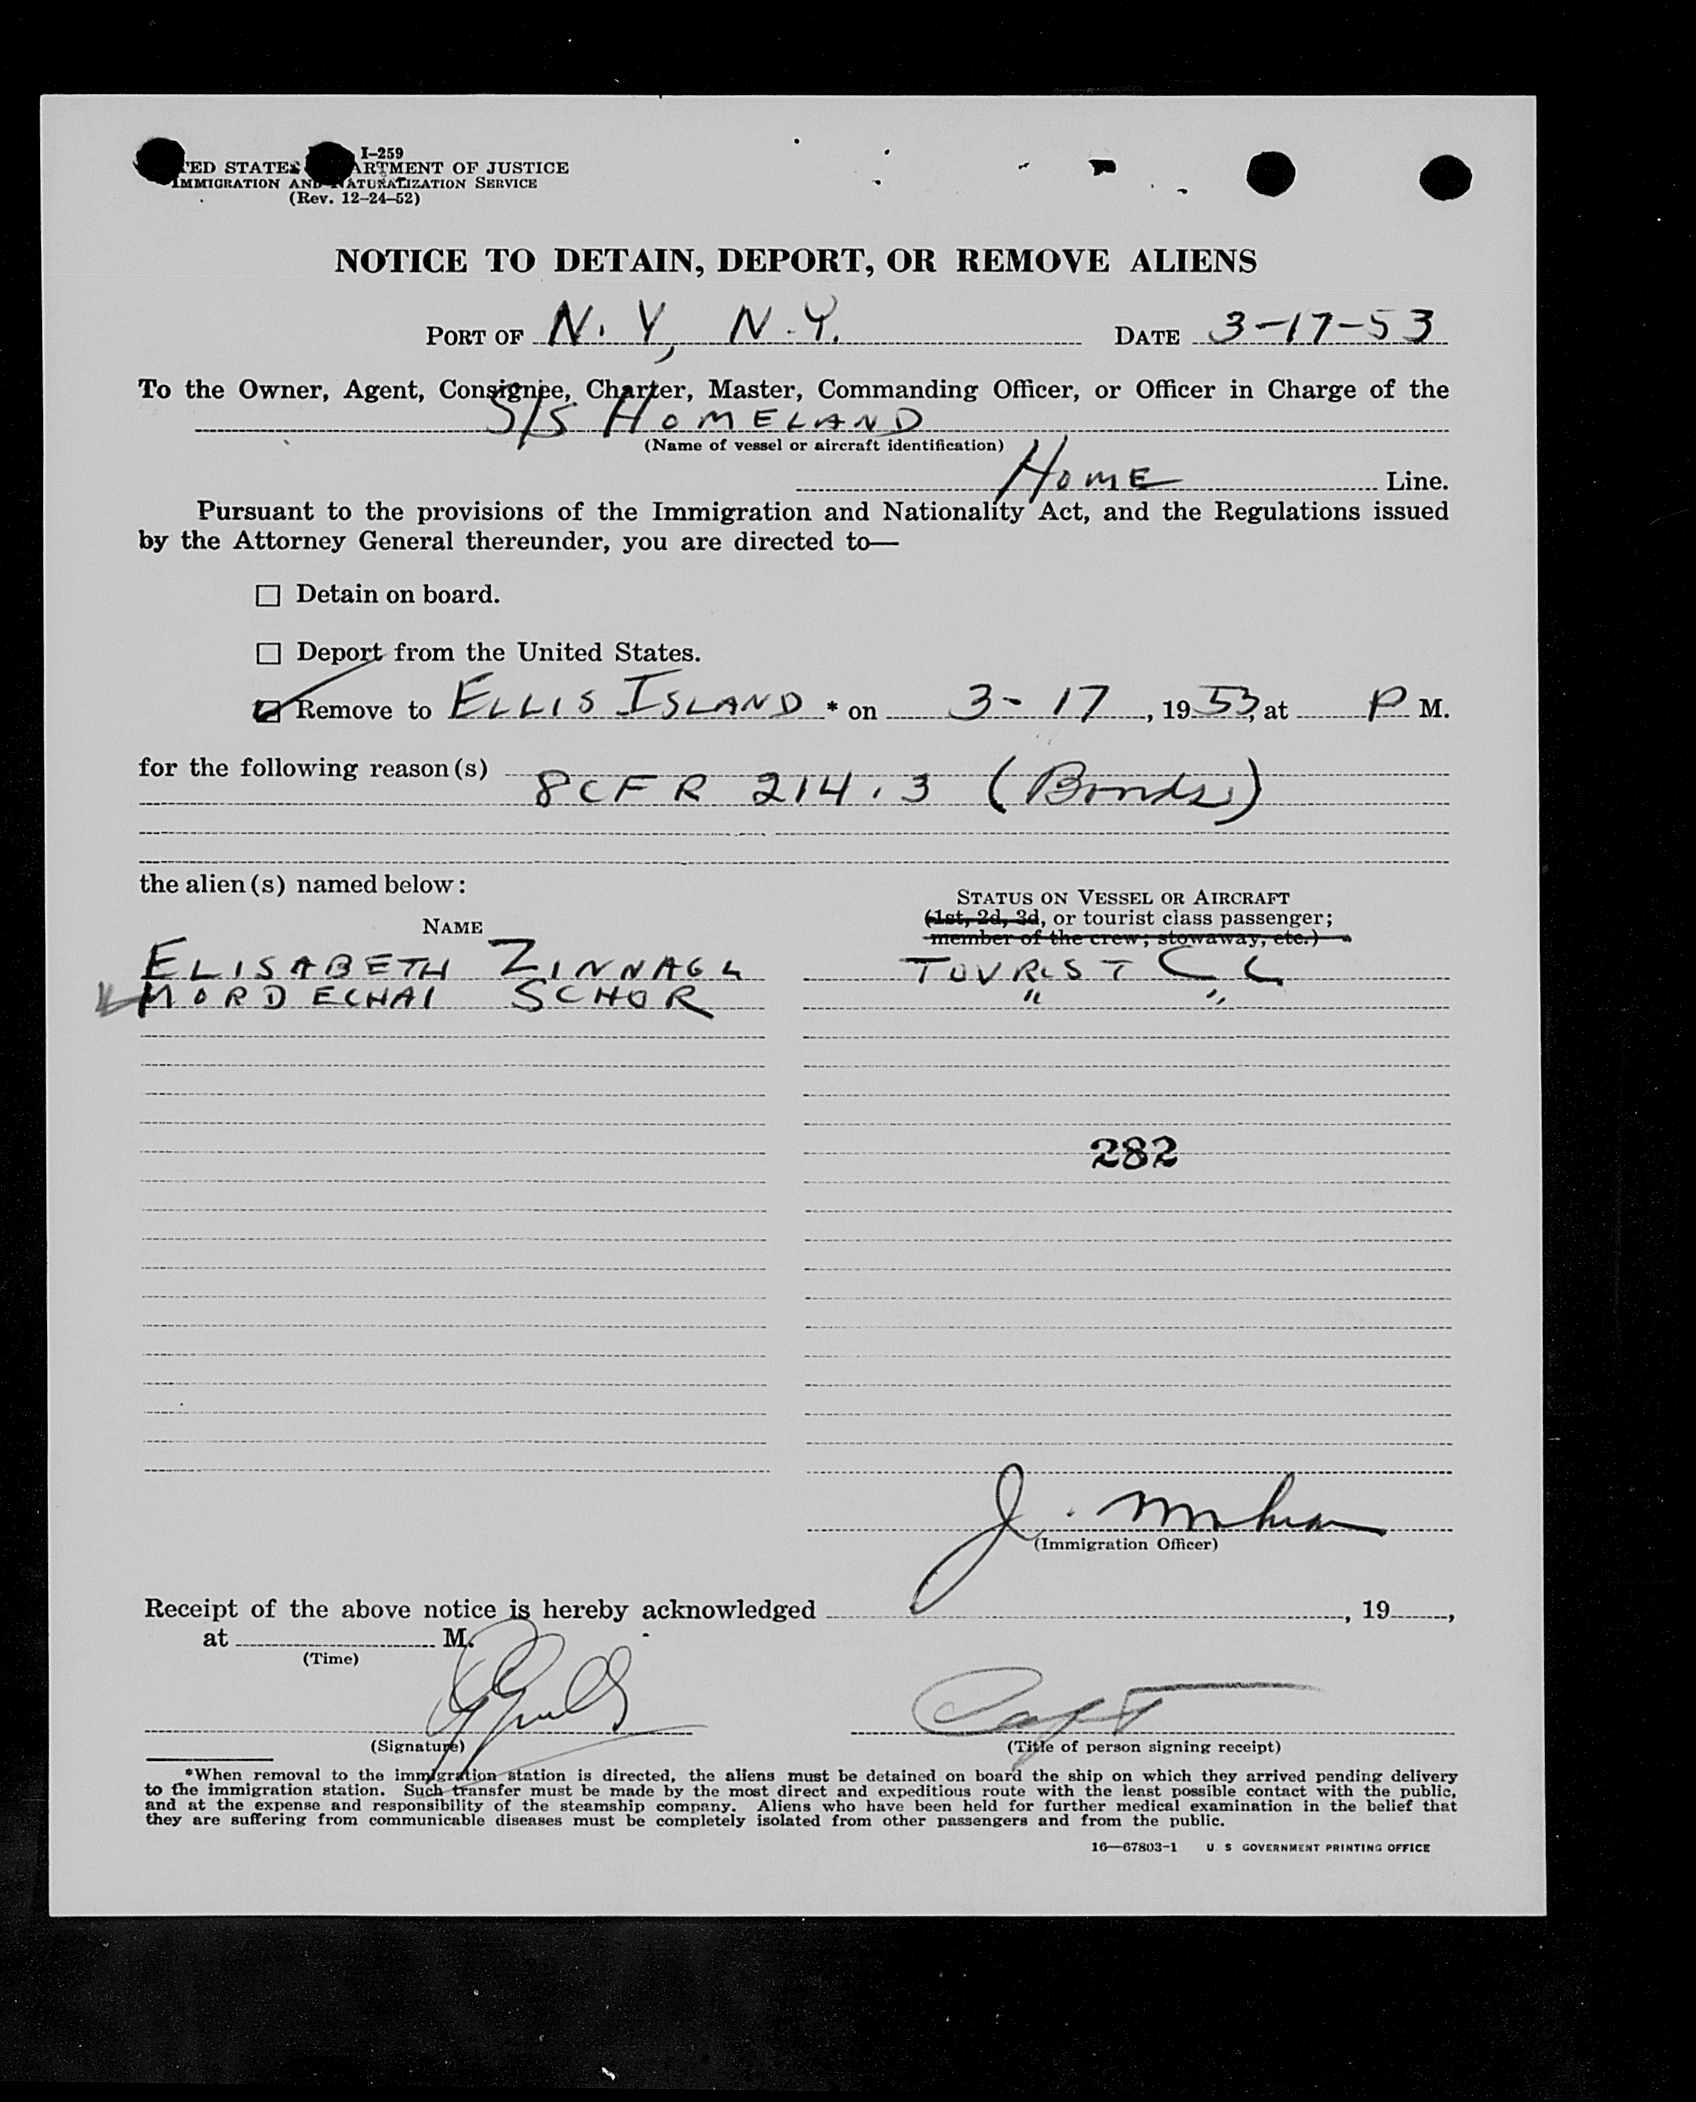 I-259
TED STATES ARTMENT OF JUSTICE
IMMIGRATION AND NATURALIZATION SERVICE
(Rev. 12-24-52)
NOTICE TO DETAIN, DEPORT, OR REMOVE ALIENS
PORT OF N.Y, N.Y. DATE 3-17-53
To the Owner, Agent, Consignee, Charter, Master, Commanding Officer, or Officer in Charge of the
S/S HOMELAND
(Name of vessel or aircraft identification)
HOME Line.
Pursuant to the provisions of the Immigration and Nationality Act, and the Regulations issued
by the Attorney General thereunder, you are directed to—
☐ Detain on board.
☐ Deport from the United States.
☑ Remove to ELLIS ISLAND * on 3-17, 1953, at P M.
for the following reason(s)
8CFR 214.3 (Bonds)
the alien(s) named below:
NAME
STATUS ON VESSEL OR AIRCRAFT
(1st, 2d, 3d, or tourist class passenger;
member of the crew; stowaway, etc.)
ELISABETH ZINNAGL TOURIST CL
MORDECHAI SCHOR " "
282
J.
(Immigration Officer)
Receipt of the above notice is hereby acknowledged , 19 ,
at M.
(Time)
Capt
(Signature) (Title of person signing receipt)
*When removal to the immigration station is directed, the aliens must be detained on board the ship on which they arrived pending delivery
to the immigration station. Such transfer must be made by the most direct and expeditious route with the least possible contact with the public,
and at the expense and responsibility of the steamship company. Aliens who have been held for further medical examination in the belief that
they are suffering from communicable diseases must be completely isolated from other passengers and from the public.
16—67803-1 U. S GOVERNMENT PRINTING OFFICE